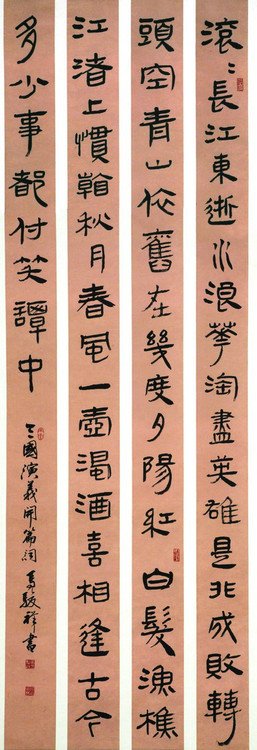 滚〻長江東逝水浪華淘盡英雄是非成敗轉
頭空青山依舊在幾度夕陽紅白髮漁樵
江渚上慣看秋月春風一壺濁酒喜相逢古今
多少事都付笑譚中
三國演義開篇詞 馬駿祥書